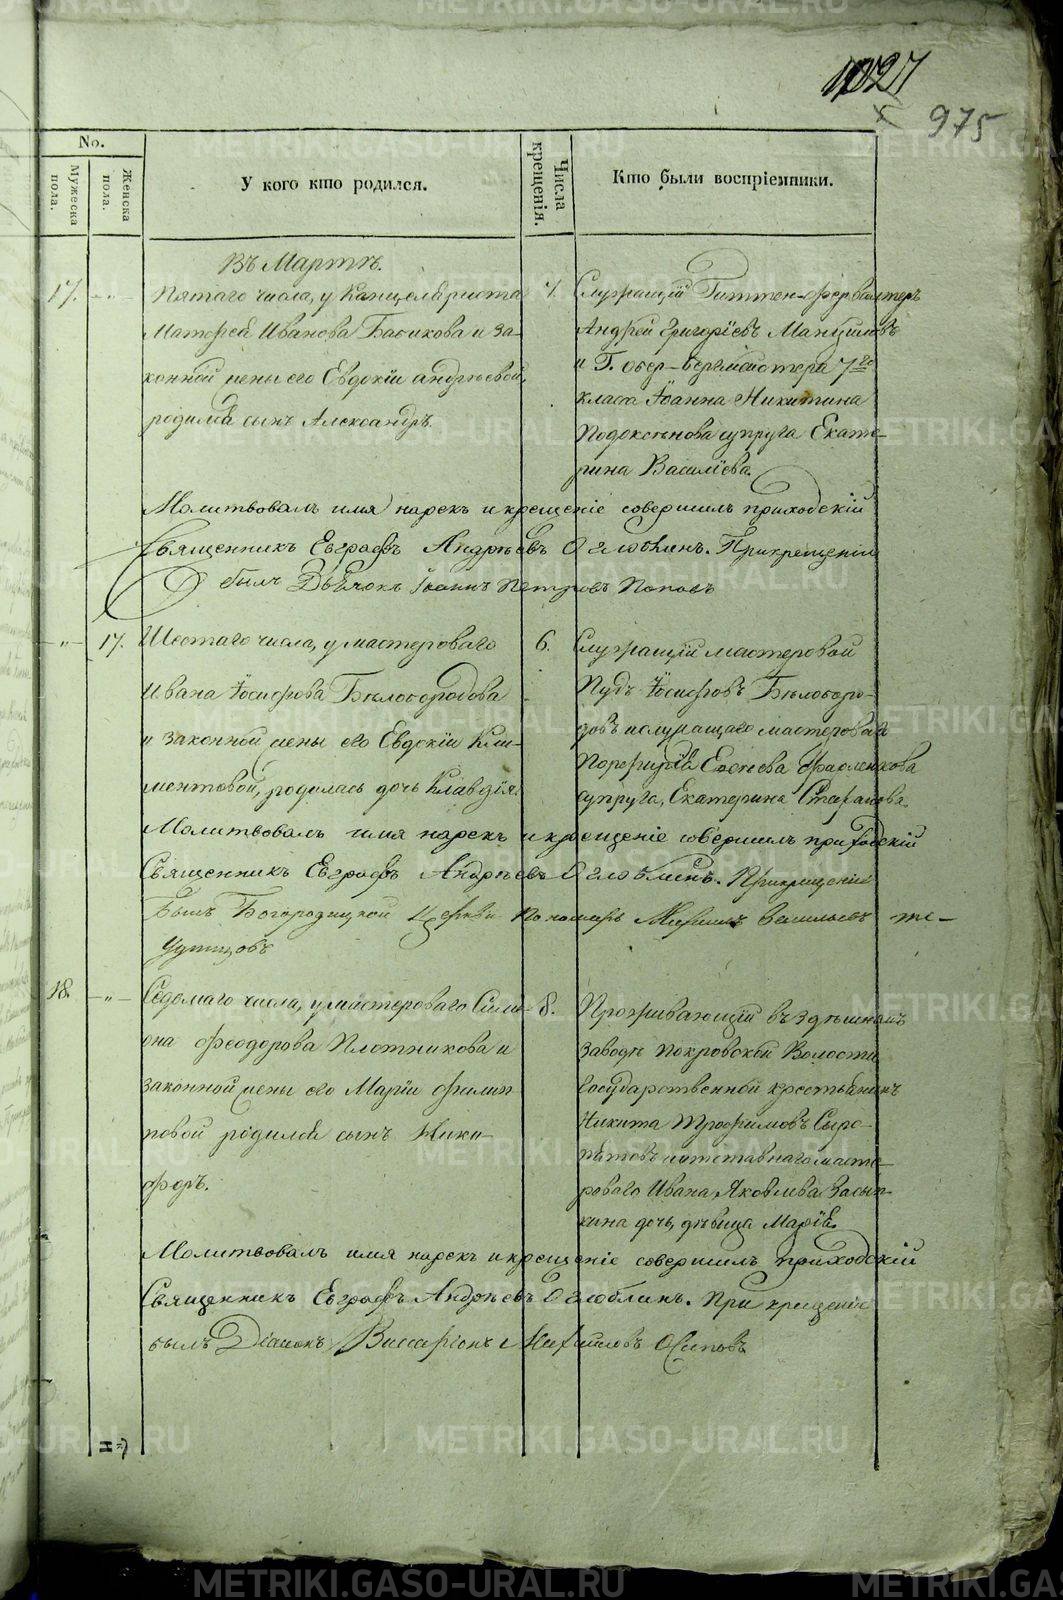 METRIKI.GASO-URAL.RU
1027
975
No.
Мужеска пола.
Женска пола.
У кого кто родился.
Числа крещенія.
Кто были воспріемники.
Въ Мартѣ.
17. — " — Пятаго числа, у Канцеляриста
Матфея Иванова Бабикова и за-
конной жены его Евдокіи Андреевой,
родился сынъ Александръ.
7. Служащій Гиттен-фервалтеръ
Андрей Григоріевъ
и Г. Обер-бергмейстера 7го
класа Іоанна Никитина
супруга Екате-
рина Василіева.
Молитвовалъ имя нарекъ и крещеніе совершилъ приходскій
Священникъ Евграфъ Андреевъ Оглоблинъ. При крещеніи
былъ Дьячокъ Іоаннъ Петровъ Поповъ
" — 17. Шестаго числа, у мастероваго
Ивана Іосифова Бѣлобородова
и законной жены его Евдокіи Кли-
ментовой, родилась дочь Клавдія.
6. Служащій мастеровой
Пудъ Іосифовъ Бѣлоборо-
довъ и служащаго мастероваго
Порфирія
супруга, Екатерина Стефанова.
Молитвовалъ имя нарекъ и крещеніе совершилъ приходскій
Священникъ Евграфъ Андреевъ Оглоблинъ. При крещеніи
былъ Богородицкой Церкви Пономарь Васильевъ
18. — " — Седомаго числа, у мастероваго Симе-
она Феодорова Плотникова и
законной жены его Маріи Филип-
повой родился сынъ Ники-
форъ.
8. Проживающій въ здѣшнемъ
заводѣ Покровской Волости
Государственной крестьянинъ
Никита Трофимовъ Сыро-
пятовъ и отставнаго масте-
роваго Ивана Яковлева Засып-
кина дочь, дѣвица Марія.
Молитвовалъ имя нарекъ и крещеніе совершилъ приходскій
Священникъ Евграфъ Андреевъ Оглоблинъ. При крещеніи
былъ Діаконъ Виссаріонъ Михайловъ Осиповъ